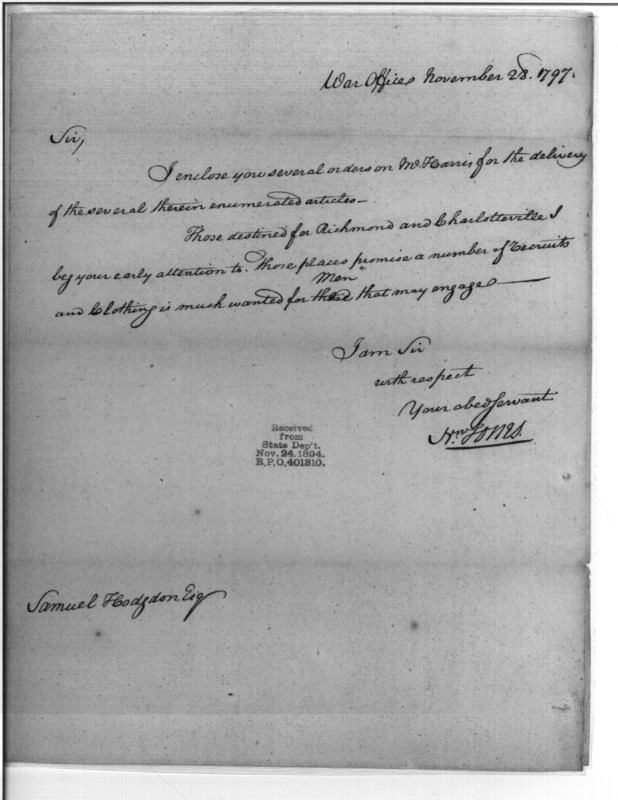 War Office November 28. 1797.
Sir,
I enclose you several orders on Mr. Harris for the delivery
of the several therein enumerated articles—
Those destined for Richmond and Charlotteville I
beg your early attention to. Those places promise a number of Recruits
Men
and Clothing is much wanted for that may engage—
I am Sir
with respect
Your obed Servant
Received
from
State Dep't.
Nov. 24. 1894.
R.P.O. 401310.
Samuel Hodgdon Esq